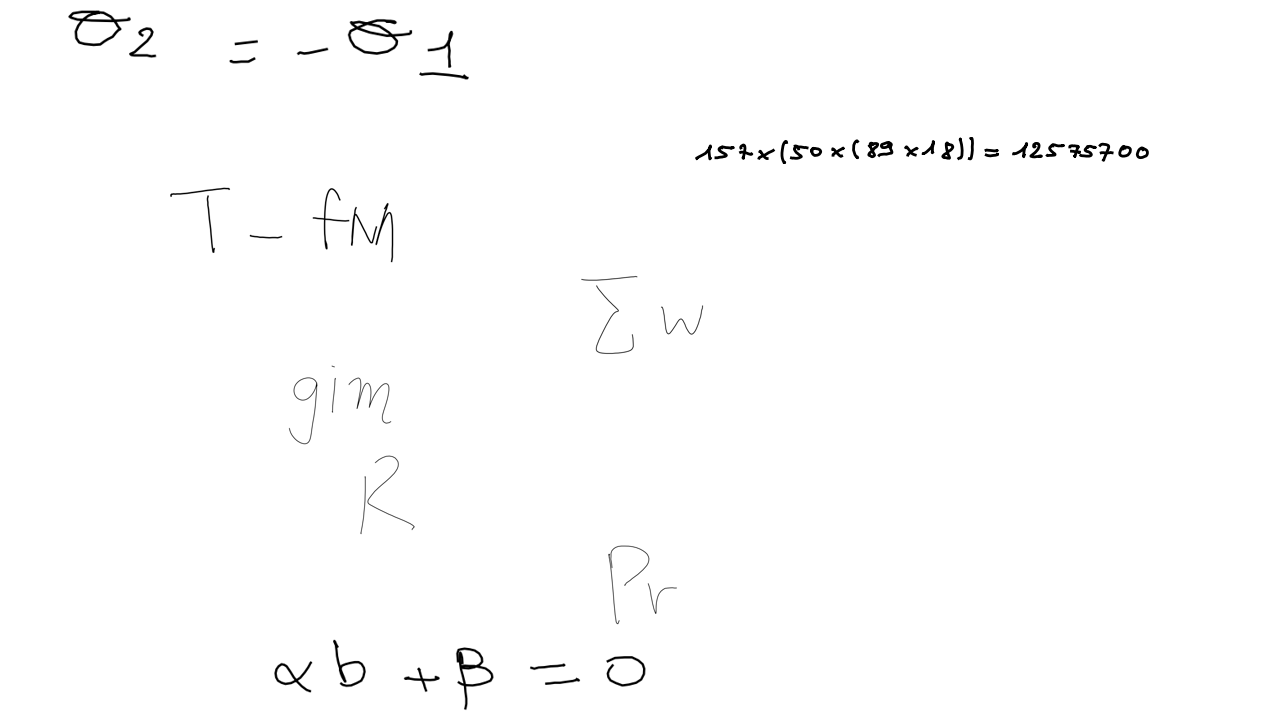 σ₂ = -σ₁
157×(50×(89×18)) = 12575700
T - fM
Σ w
gim
R
Pr
αb + β = 0